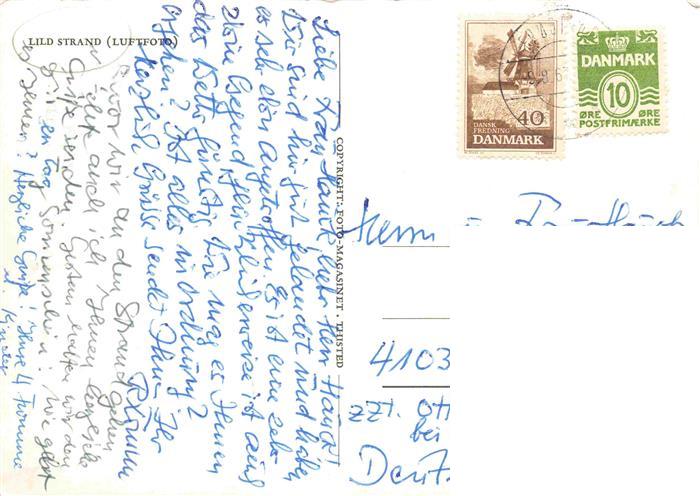 LILD STRAND (LUFTFOTO)
Liebe Frau Hauck, lieber Herr Hauck!
Wir sind hier gut gelandet und haben
es sehr schön angetroffen. Es ist eine sehr
schöne Gegend, glücklicherweise ist auch
das Wetter günstig. Wie mag es Ihnen
gehen? Ist alles in Ordnung?
Herzliche Grüsse sendet Ihnen Ihr
Bevor wir an den Strand gehen
möchte auch ich Ihnen herzliche
Grüße senden. Gestern hatten wir den
Tag Sonnenschein! Wie geht
es Ihnen? Herzliche Grüße! Ihre
u. Kinder
COPYRIGHT: FOTO-MAGASINET · THISTED
DANSK
FREDNING
40
DANMARK
DANMARK
10
ØRE ØRE
POSTFRIMÆRKE
Herrn u. Fr. Hauck
4103
zzt. Ott
bei